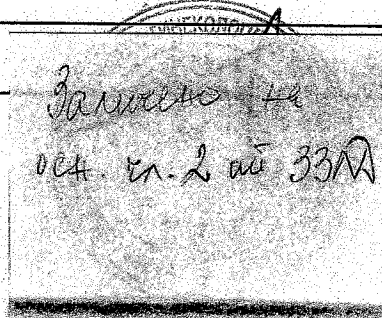 Заличено на
осн. чл. 2 от ЗЗЛД